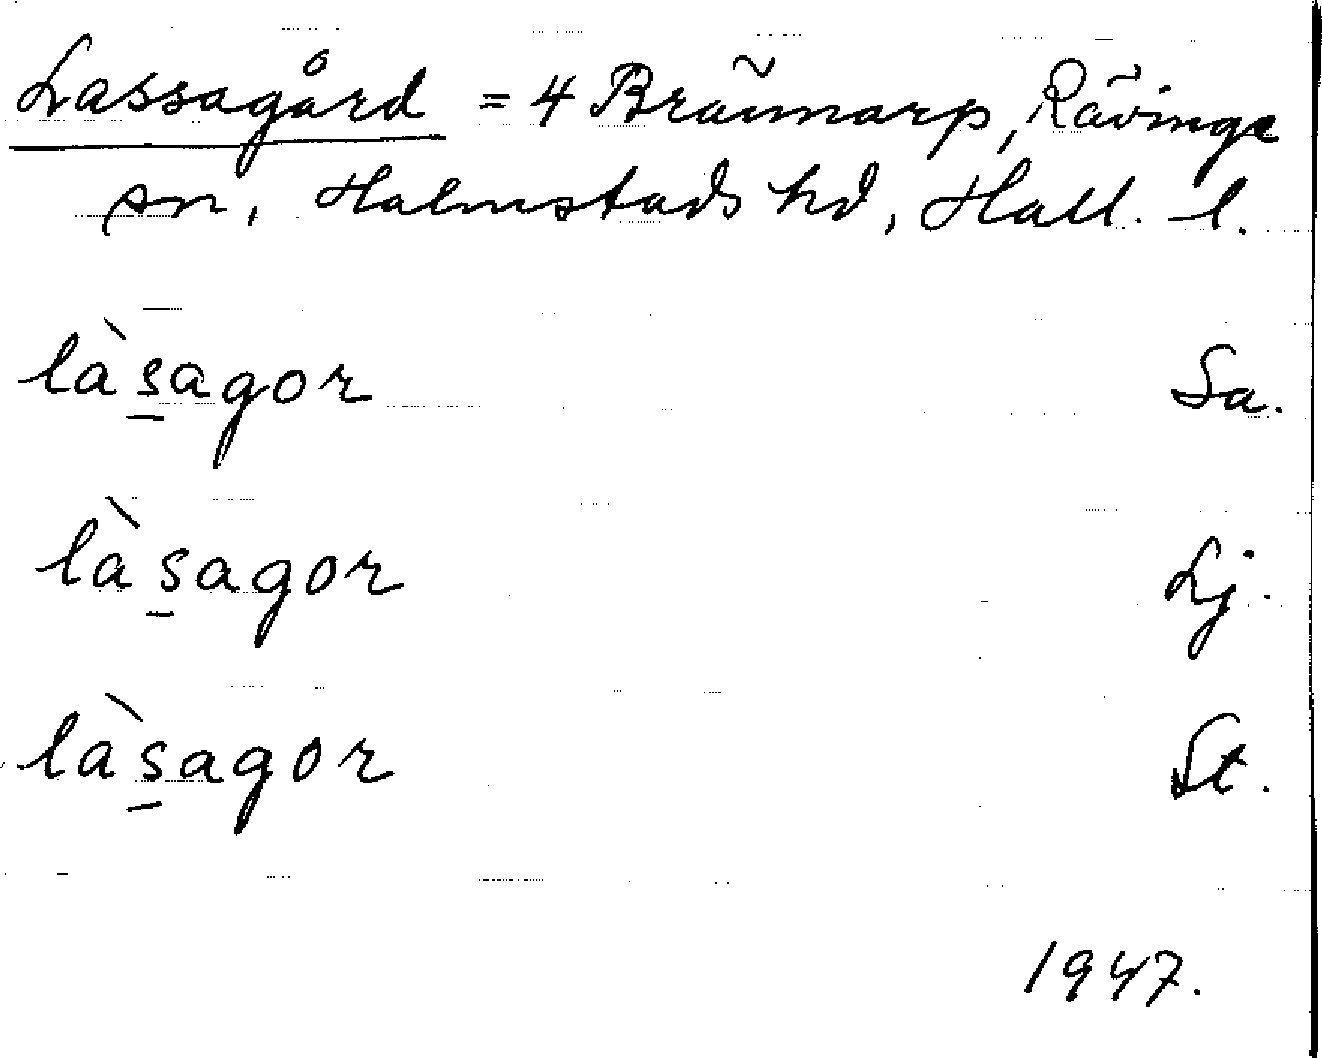 Lassagård = 4 Bräimarp, Rävinge
sn, Halmstads hd, Hall. l.
là`s̲agor Sa.
là`s̲agor Lj.
là`s̲agor St.
1947.